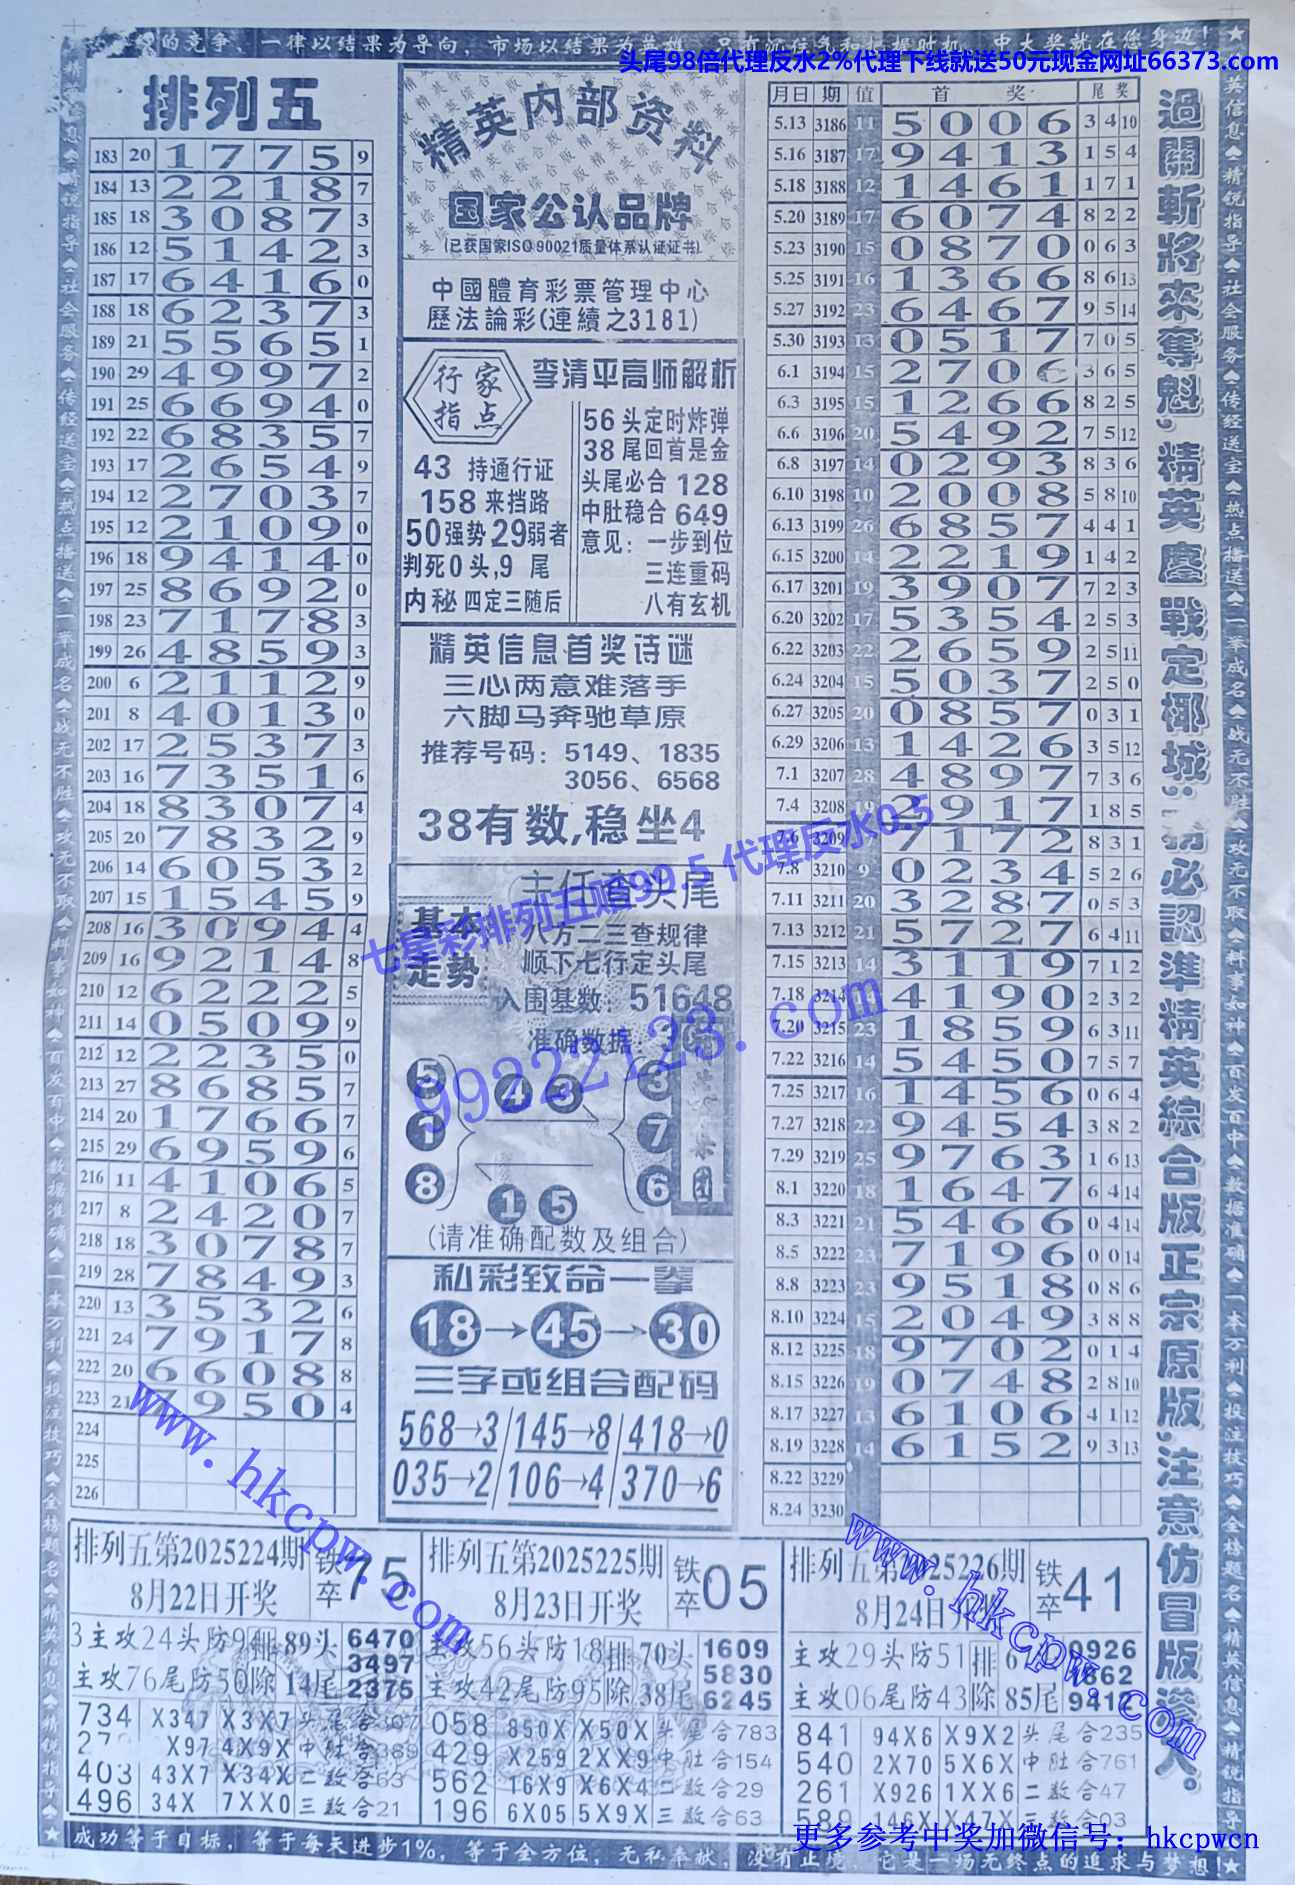 头尾98倍代理反水2%代理下线就送50元现金网址66373.com
排列五
183 20 1 7 7 5 9
184 13 2 2 1 8 7
185 18 3 0 8 7 3
186 12 5 1 4 2 3
187 17 6 4 1 6 0
188 18 6 2 3 7 3
189 21 5 5 6 5 1
190 29 4 9 9 7 2
191 25 6 6 9 4 0
192 22 6 8 3 5 7
193 17 2 6 5 4 9
194 12 2 7 0 3 7
195 12 2 1 0 9 0
196 18 9 4 1 4 0
197 25 8 6 9 2 0
198 23 7 1 7 8 3
199 26 4 8 5 9 3
200 6 2 1 1 2 9
201 8 4 0 1 3 0
202 17 2 5 3 7 3
203 16 7 3 5 1 6
204 18 8 3 0 7 4
205 20 7 8 3 2 9
206 14 6 0 5 3 2
207 15 1 5 4 5 9
208 16 3 0 9 4 4
209 16 9 2 1 4 8
210 12 6 2 2 2 5
211 14 0 5 0 9 9
212 12 2 2 3 5 0
213 27 8 6 8 5 7
214 20 1 7 6 6 7
215 29 6 9 5 9 6
216 11 4 1 0 6 5
217 8 2 4 2 0 7
218 18 3 0 7 8 7
219 28 7 8 4 9 3
220 13 3 5 3 2 6
221 24 7 9 1 7 8
222 20 6 6 0 8 8
223 21 7 9 5 0 4
224
225
226
精英内部资料
国家公认品牌
(已获国家ISO90021质量体系认证证书)
中國體育彩票管理中心
歷法論彩(連續之3181)
行家指点
李清平高师解析
43 持通行证
158来挡路
50强势29弱者
判死0头,9 尾
内秘 四定三随后
56 头定时炸弹
38 尾回首是金
头尾必合 128
中肚稳合 649
意见: 一步到位
三连重码
八有玄机
精英信息首奖诗谜
三心两意难落手
六脚马奔驰草原
推荐号码: 5149、1835
3056、6568
38有数,稳坐4
主任查头尾
基本走势
八方二三查规律
顺下七行定头尾
入围基数: 51648
准确数据
5 1 8
4 9
1 5
3 7 6
(请准确配数及组合)
私彩致命一拳
18→45→30
三字或组合配码
568→3/145→8/418→0
035→2/106→4/370→6
月日 期 值 首奖 尾奖
5.13 3186 11 5 0 0 6 3 4 10
5.16 3187 17 9 4 1 3 1 5 4
5.18 3188 12 1 4 6 1 1 7 1
5.20 3189 17 6 0 7 4 8 2 2
5.23 3190 15 0 8 7 0 0 6 3
5.25 3191 16 1 3 6 6 8 6 13
5.27 3192 23 6 4 6 7 9 5 14
5.30 3193 13 0 5 1 7 7 0 5
6.1 3194 15 2 7 0 6 3 6 5
6.3 3195 15 1 2 6 6 8 2 5
6.6 3196 20 5 4 9 2 7 5 12
6.8 3197 14 0 2 9 3 8 3 6
6.10 3198 10 2 0 0 8 5 8 10
6.13 3199 26 6 8 5 7 4 4 1
6.15 3200 14 2 2 1 9 1 4 2
6.17 3201 19 3 9 0 7 7 2 3
6.20 3202 17 5 3 5 4 2 5 3
6.22 3203 22 2 6 5 9 2 5 11
6.24 3204 15 5 0 3 7 2 5 0
6.27 3205 20 0 8 5 7 0 3 1
6.29 3206 13 1 4 2 6 3 5 12
7.1 3207 28 4 8 9 7 7 3 6
7.4 3208 19 2 9 1 7 1 8 5
7.6 3209 7 1 7 2 8 3 1
7.8 3210 9 0 2 3 4 5 2 6
7.11 3211 20 3 2 8 7 0 5 3
7.13 3212 21 5 7 2 7 6 4 11
7.15 3213 14 3 1 1 9 7 1 2
7.18 3214 4 1 9 0 2 3 2
7.20 3215 23 1 8 5 9 6 3 11
7.22 3216 14 5 4 5 0 7 5 7
7.25 3217 16 1 4 5 6 0 6 4
7.27 3218 22 9 4 5 4 3 8 2
7.29 3219 25 9 7 6 3 1 6 13
8.1 3220 18 1 6 4 7 6 4 14
8.3 3221 21 5 4 6 6 0 4 14
8.5 3222 23 7 1 9 6 0 0 14
8.8 3223 23 9 5 1 8 0 8 6
8.10 3224 15 2 0 4 9 3 8 8
8.12 3225 18 9 7 0 2 0 1 4
8.15 3226 19 0 7 4 8 2 8 10
8.17 3227 13 6 1 0 6 4 1 12
8.19 3228 14 6 1 5 2 9 3 13
8.22 3229
8.24 3230
過關斬將來奪魁,精英鏖戰定椰城;務必認準精英綜合版正宗原版,注意仿冒版浸人。
七星彩排列五赔99.5 代理反水0.5
99322123.com
www.hkcpw.com
www.hkcpw.com
排列五第2025224期
8月22日开奖
铁卒75
主攻24头防9
排89头
主攻76尾防50
除14尾
6470
3497
2375
734 X347 X3X7 头尾合
X97 4X9X 中肚合389
403 43X7 X34X 二数合63
496 34X 7XX0 三数合21
排列五第2025225期
8月23日开奖
铁卒05
主攻56头防18
排70头
主攻42尾防95
除38尾
1609
5830
6245
058 850X X50X 头尾合783
429 X259 2XX9 中肚合154
562 16X9 X6X4 二数合29
196 6X05 5X9X 三数合63
排列五第2025226期
8月24日开奖
铁卒41
主攻29头防51
主攻06尾防43
除85尾
0926
9418
841 94X6 X9X2 头尾合235
540 2X70 5X6X 中肚合761
261 X926 1XX6 二数合47
589 146X X47X 三数合03
更多参考中奖加微信号: hkcpwcn
成功等于目标,等于每天进步1%,等于全方位,无私奉献,没有止境,它是一场无终点的追求与梦想!